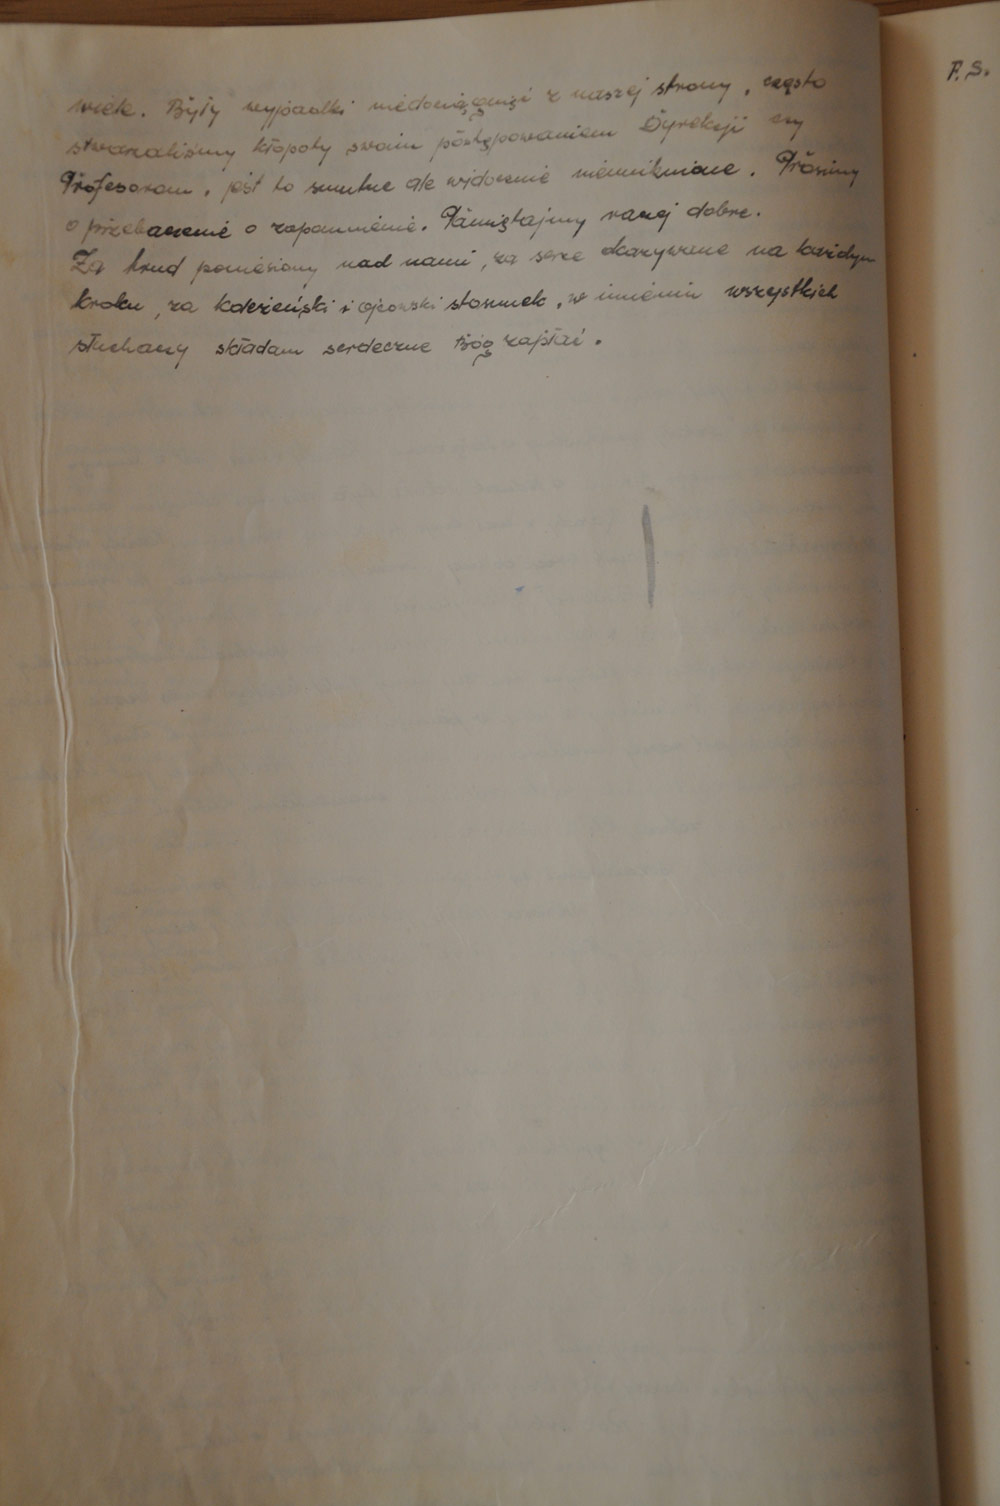 wiele. Były wypadki niedociągnięć z naszej strony, często
stwarzaliśmy kłopoty swoim postępowaniem Dyrekcji czy
Profesorom, jest to smutne ale widocznie nieuniknione. Prosimy
o przebaczenie o zapomnienie. Pamiętajmy raczej dobre.
Za trud poniesiony nad nami, za serce okazywane na każdym
kroku, za koleżeński i ojcowski stosunek, w imieniu wszystkich
słuchaczy składam serdeczne Bóg zapłać.
P.S.